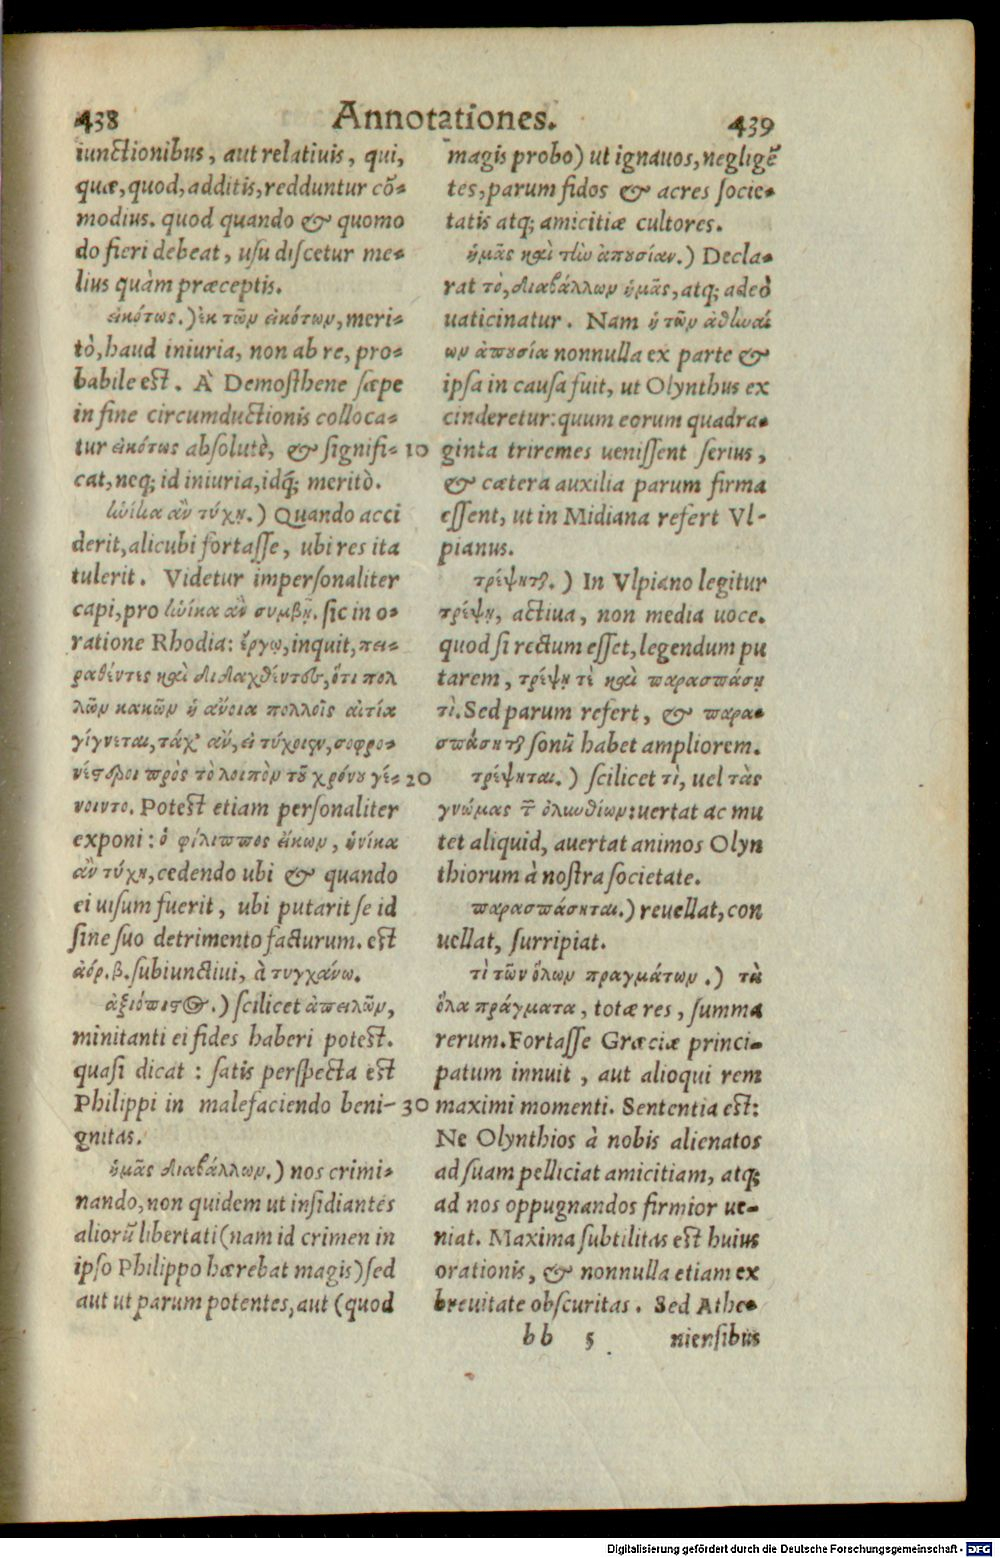 438 Annotationes. 439
iunctionibus, aut relatiuis, qui,
quæ, quod, additis, redduntur cõ-
modius. quod quando & quomo
do fieri debeat, usu discetur me-
lius quàm præceptis.
εἰκότως.) ἐκ τῶν εἰκότων, meri-
tò, haud iniuria, non ab re, pro-
babile est. À Demosthene sæpe
in fine circumductionis colloca-
tur εἰκότως absolutè, & signifi-
cat, neq; id iniuria, idq́; meritò.
ἡνίκα ἂν τύχῃ.) Quando acci
derit, alicubi fortasse, ubi res ita
tulerit. Videtur impersonaliter
capi, pro ἡνίκα ἂν συμβῇ. sic in o-
ratione Rhodia: ἔργῳ, inquit, πει-
ραθέντες καὶ διδαχθέντες, ὅτι πολ
λῶν κακῶν ἡ ἄνοια πολλοῖς αἰτία
γίγνεται, τάχ' ἄν, εἰ τύχοιεν, σοφρο-
νέστεροι πρὸς τὸ λοιπὸν τοῦ χρόνου γέ-
νοιντο. Potest etiam personaliter
exponi: ὁ φίλιππος εἴκων, ἡνίκα
ἂν τύχῃ, cedendo ubi & quando
ei uisum fuerit, ubi putarit se id
sine suo detrimento facturum. est
ἀόρ. β. subiunctiui, à τυγχάνω.
ἀξιόπιστος.) scilicet ἀπειλῶν,
minitanti ei fides haberi potest.
quasi dicat: satis perspecta est
Philippi in malefaciendo beni-
gnitas.
ἡμᾶς διαβάλλων.) nos crimi-
nando, non quidem ut insidiantes
aliorũ libertati (nam id crimen in
ipso Philippo hærebat magis) sed
aut ut parum potentes, aut (quod
10
20
30
magis probo) ut ignauos, negligẽ
tes, parum fidos & acres socie-
tatis atq; amicitiæ cultores.
ἡμᾶς καὶ τὴν ἀπουσίαν.) Decla-
rat τὸ, διαβάλλων ἡμᾶς, atq; adeò
uaticinatur. Nam ἡ τῶν ἀθηναί
ων ἀπουσία nonnulla ex parte &
ipsa in causa fuit, ut Olynthus ex
cinderetur: quum eorum quadra-
ginta triremes uenissent serius,
& cætera auxilia parum firma
essent, ut in Midiana refert Vl-
pianus.
τρέψηται.) In Vlpiano legitur
τρέψῃ, actiua, non media uoce.
quod si rectum esset, legendum pu
tarem, τρέψῃ τὶ καὶ παρασπάσῃ
τὶ. Sed parum refert, & παρα-
σπάσηται sonũ habet ampliorem.
τρέψηται.) scilicet τὶ, uel τὰς
γνώμας τῶν ὀλυνθίων: uertat ac mu
tet aliquid, auertat animos Olyn
thiorum à nostra societate.
παρασπάσηται.) reuellat, con
uellat, surripiat.
τὶ τῶν ὅλων πραγμάτων.) τὰ
ὅλα πράγματα, totæ res, summa
rerum. Fortasse Græciæ princi-
patum innuit, aut alioqui rem
maximi momenti. Sententia est:
Ne Olynthios à nobis alienatos
ad suam pelliciat amicitiam, atq;
ad nos oppugnandos firmior ue-
niat. Maxima subtilitas est huius
orationis, & nonnulla etiam ex
breuitate obscuritas. Sed Athe-
bb 5 niensibus
Digitalisierung gefördert durch die Deutsche Forschungsgemeinschaft - DFG